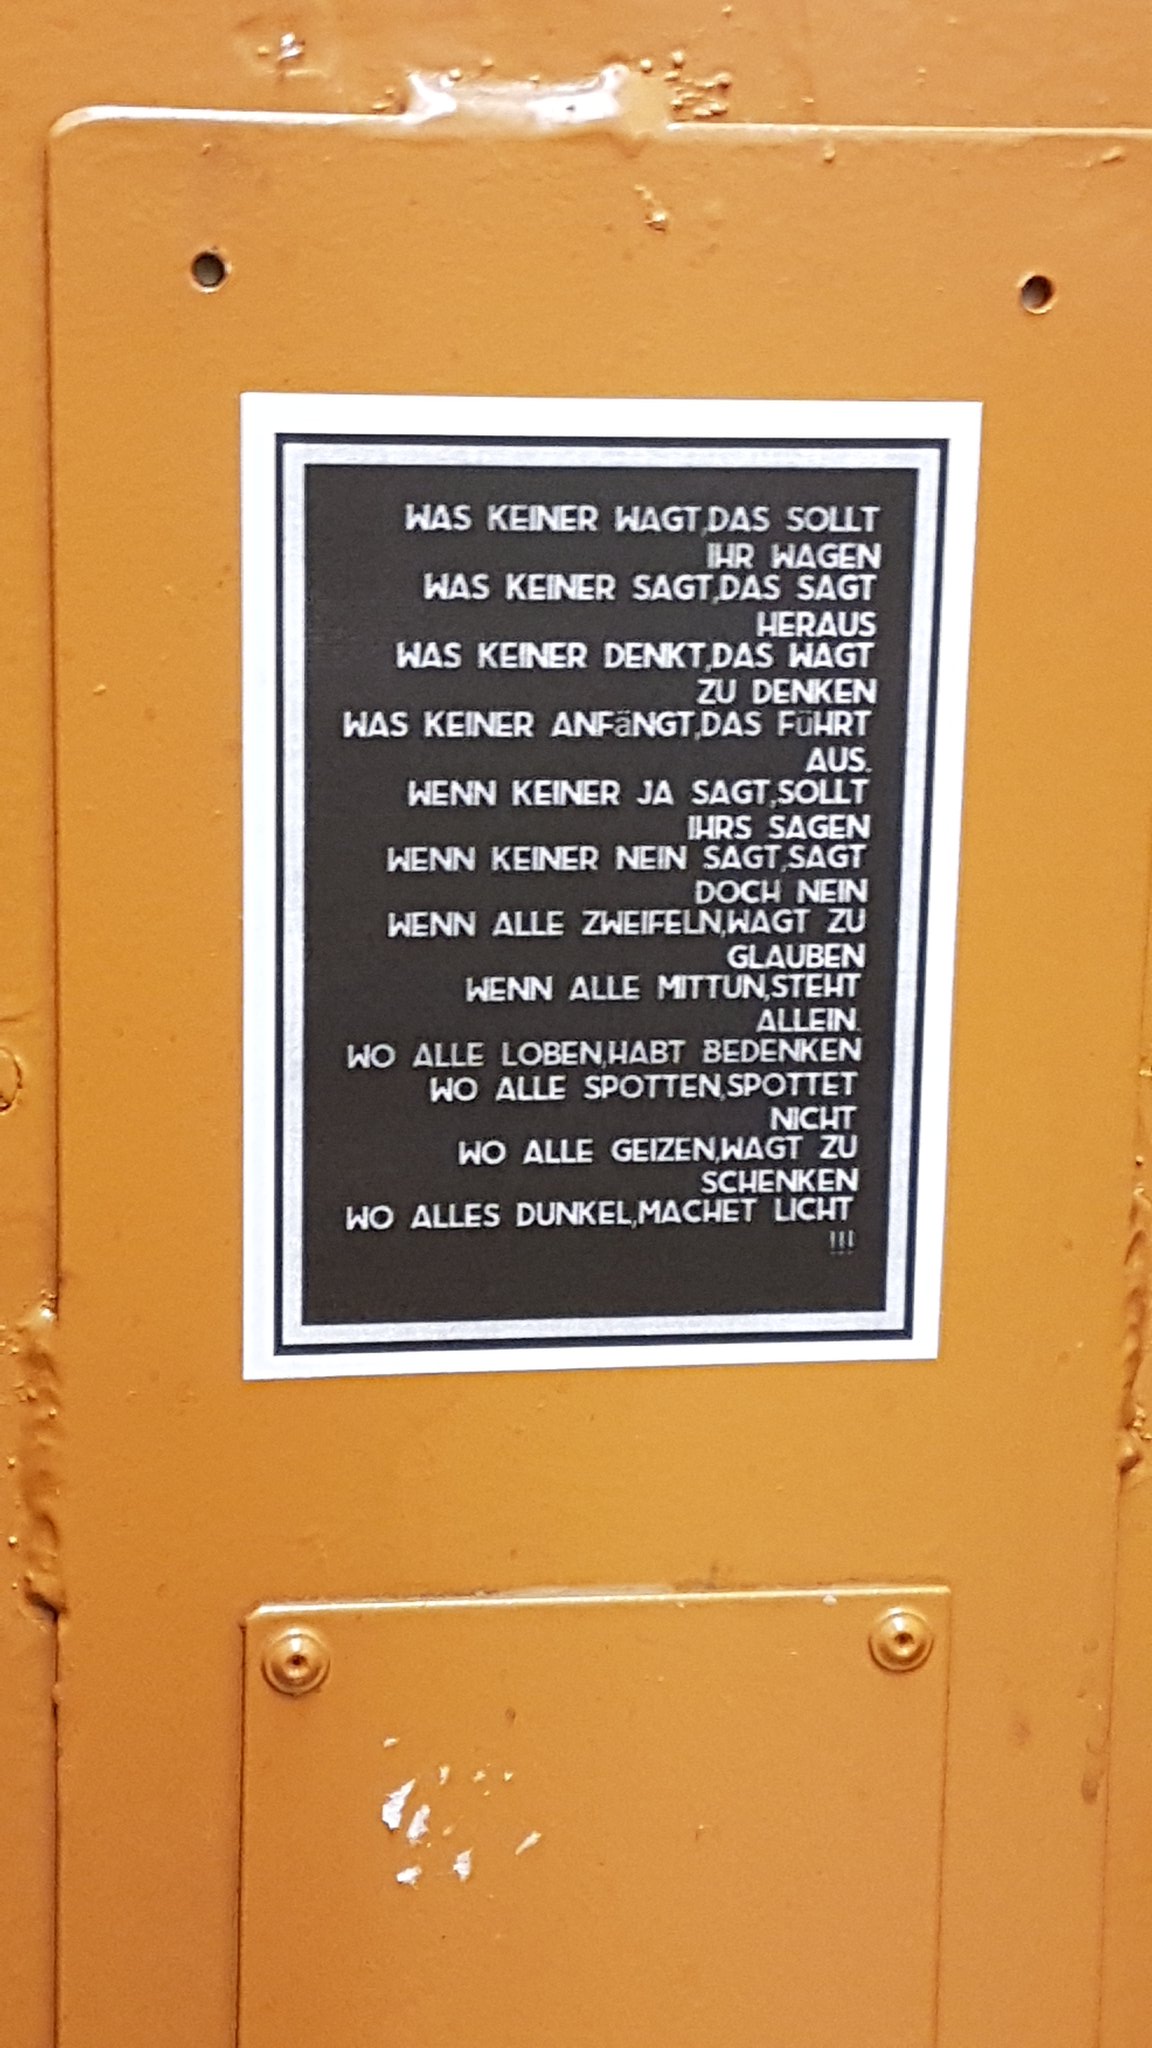 WAS KEINER WAGT,DAS SOLLT
IHR WAGEN
WAS KEINER SAGT,DAS SAGT
HERAUS
WAS KEINER DENKT,DAS WAGT
ZU DENKEN
WAS KEINER ANFäNGT,DAS FüHRT
AUS.
WENN KEINER JA SAGT,SOLLT
IHRS SAGEN
WENN KEINER NEIN SAGT,SAGT
DOCH NEIN
WENN ALLE ZWEIFELN,WAGT ZU
GLAUBEN
WENN ALLE MITTUN,STEHT
ALLEIN.
WO ALLE LOBEN,HABT BEDENKEN
WO ALLE SPOTTEN,SPOTTET
NICHT
WO ALLE GEIZEN,WAGT ZU
SCHENKEN
WO ALLES DUNKEL,MACHET LICHT
!!!